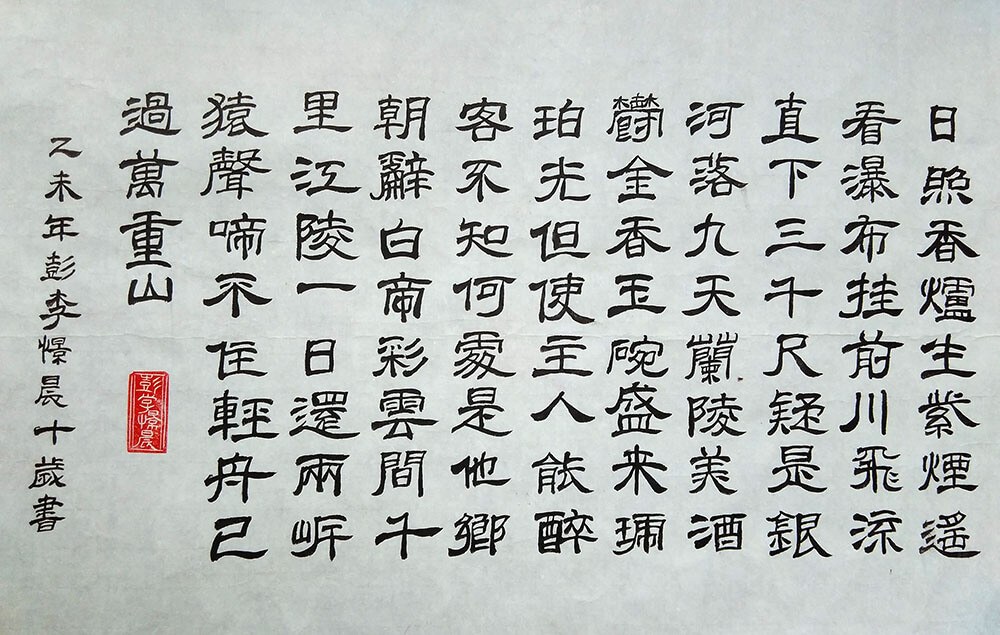 日照香爐生紫煙遙
看瀑布挂前川飛流
直下三千尺疑是銀
河落九天蘭陵美酒
鬱金香玉碗盛来琥
珀光但使主人能醉
客不知何處是他鄉
朝辭白帝彩雲間千
里江陵一日還兩岸
猿聲啼不住輕舟已
過萬重山
乙未年彭李憬晨十歲書
彭李憬晨